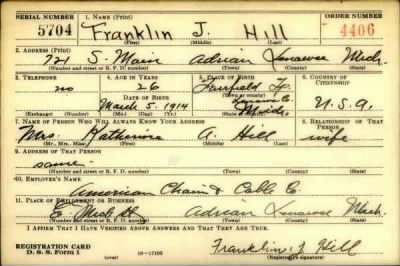 SERIAL NUMBER 1. NAME (Print) ORDER NUMBER
5704 Franklin J. Hill 4406
(First) (Middle) (Last)
2. ADDRESS (Print)
721 S. Main Adrian Lenawee Mich.
(Number and street or R. F. D. number) (Town) (County) (State)
3. TELEPHONE 4. AGE IN YEARS 5. PLACE OF BIRTH 6. COUNTRY OF CITIZENSHIP
no 26 Fairfield Tp.
DATE OF BIRTH Lenawee Co.
March 5, 1914 Mich. U.S.A.
7. NAME OF PERSON WHO WILL ALWAYS KNOW YOUR ADDRESS 8. RELATIONSHIP OF THAT PERSON
Mrs. Katherine A. Hill wife
(Mr., Mrs., Miss) (First) (Middle) (Last)
9. ADDRESS OF THAT PERSON
same
(Number and street or R. F. D. number) (Town) (County) (State)
10. EMPLOYER'S NAME
American Chain & Cable Co.
11. PLACE OF EMPLOYMENT OR BUSINESS
E. Mich. Adrian Lenawee Mich.
(Number and street or R. F. D. number) (Town) (County) (State)
I AFFIRM THAT I HAVE VERIFIED ABOVE ANSWERS AND THAT THEY ARE TRUE.
REGISTRATION CARD
D. S. S. Form 1 16—17105 Franklin J. Hill
(over) (Registrant's signature)